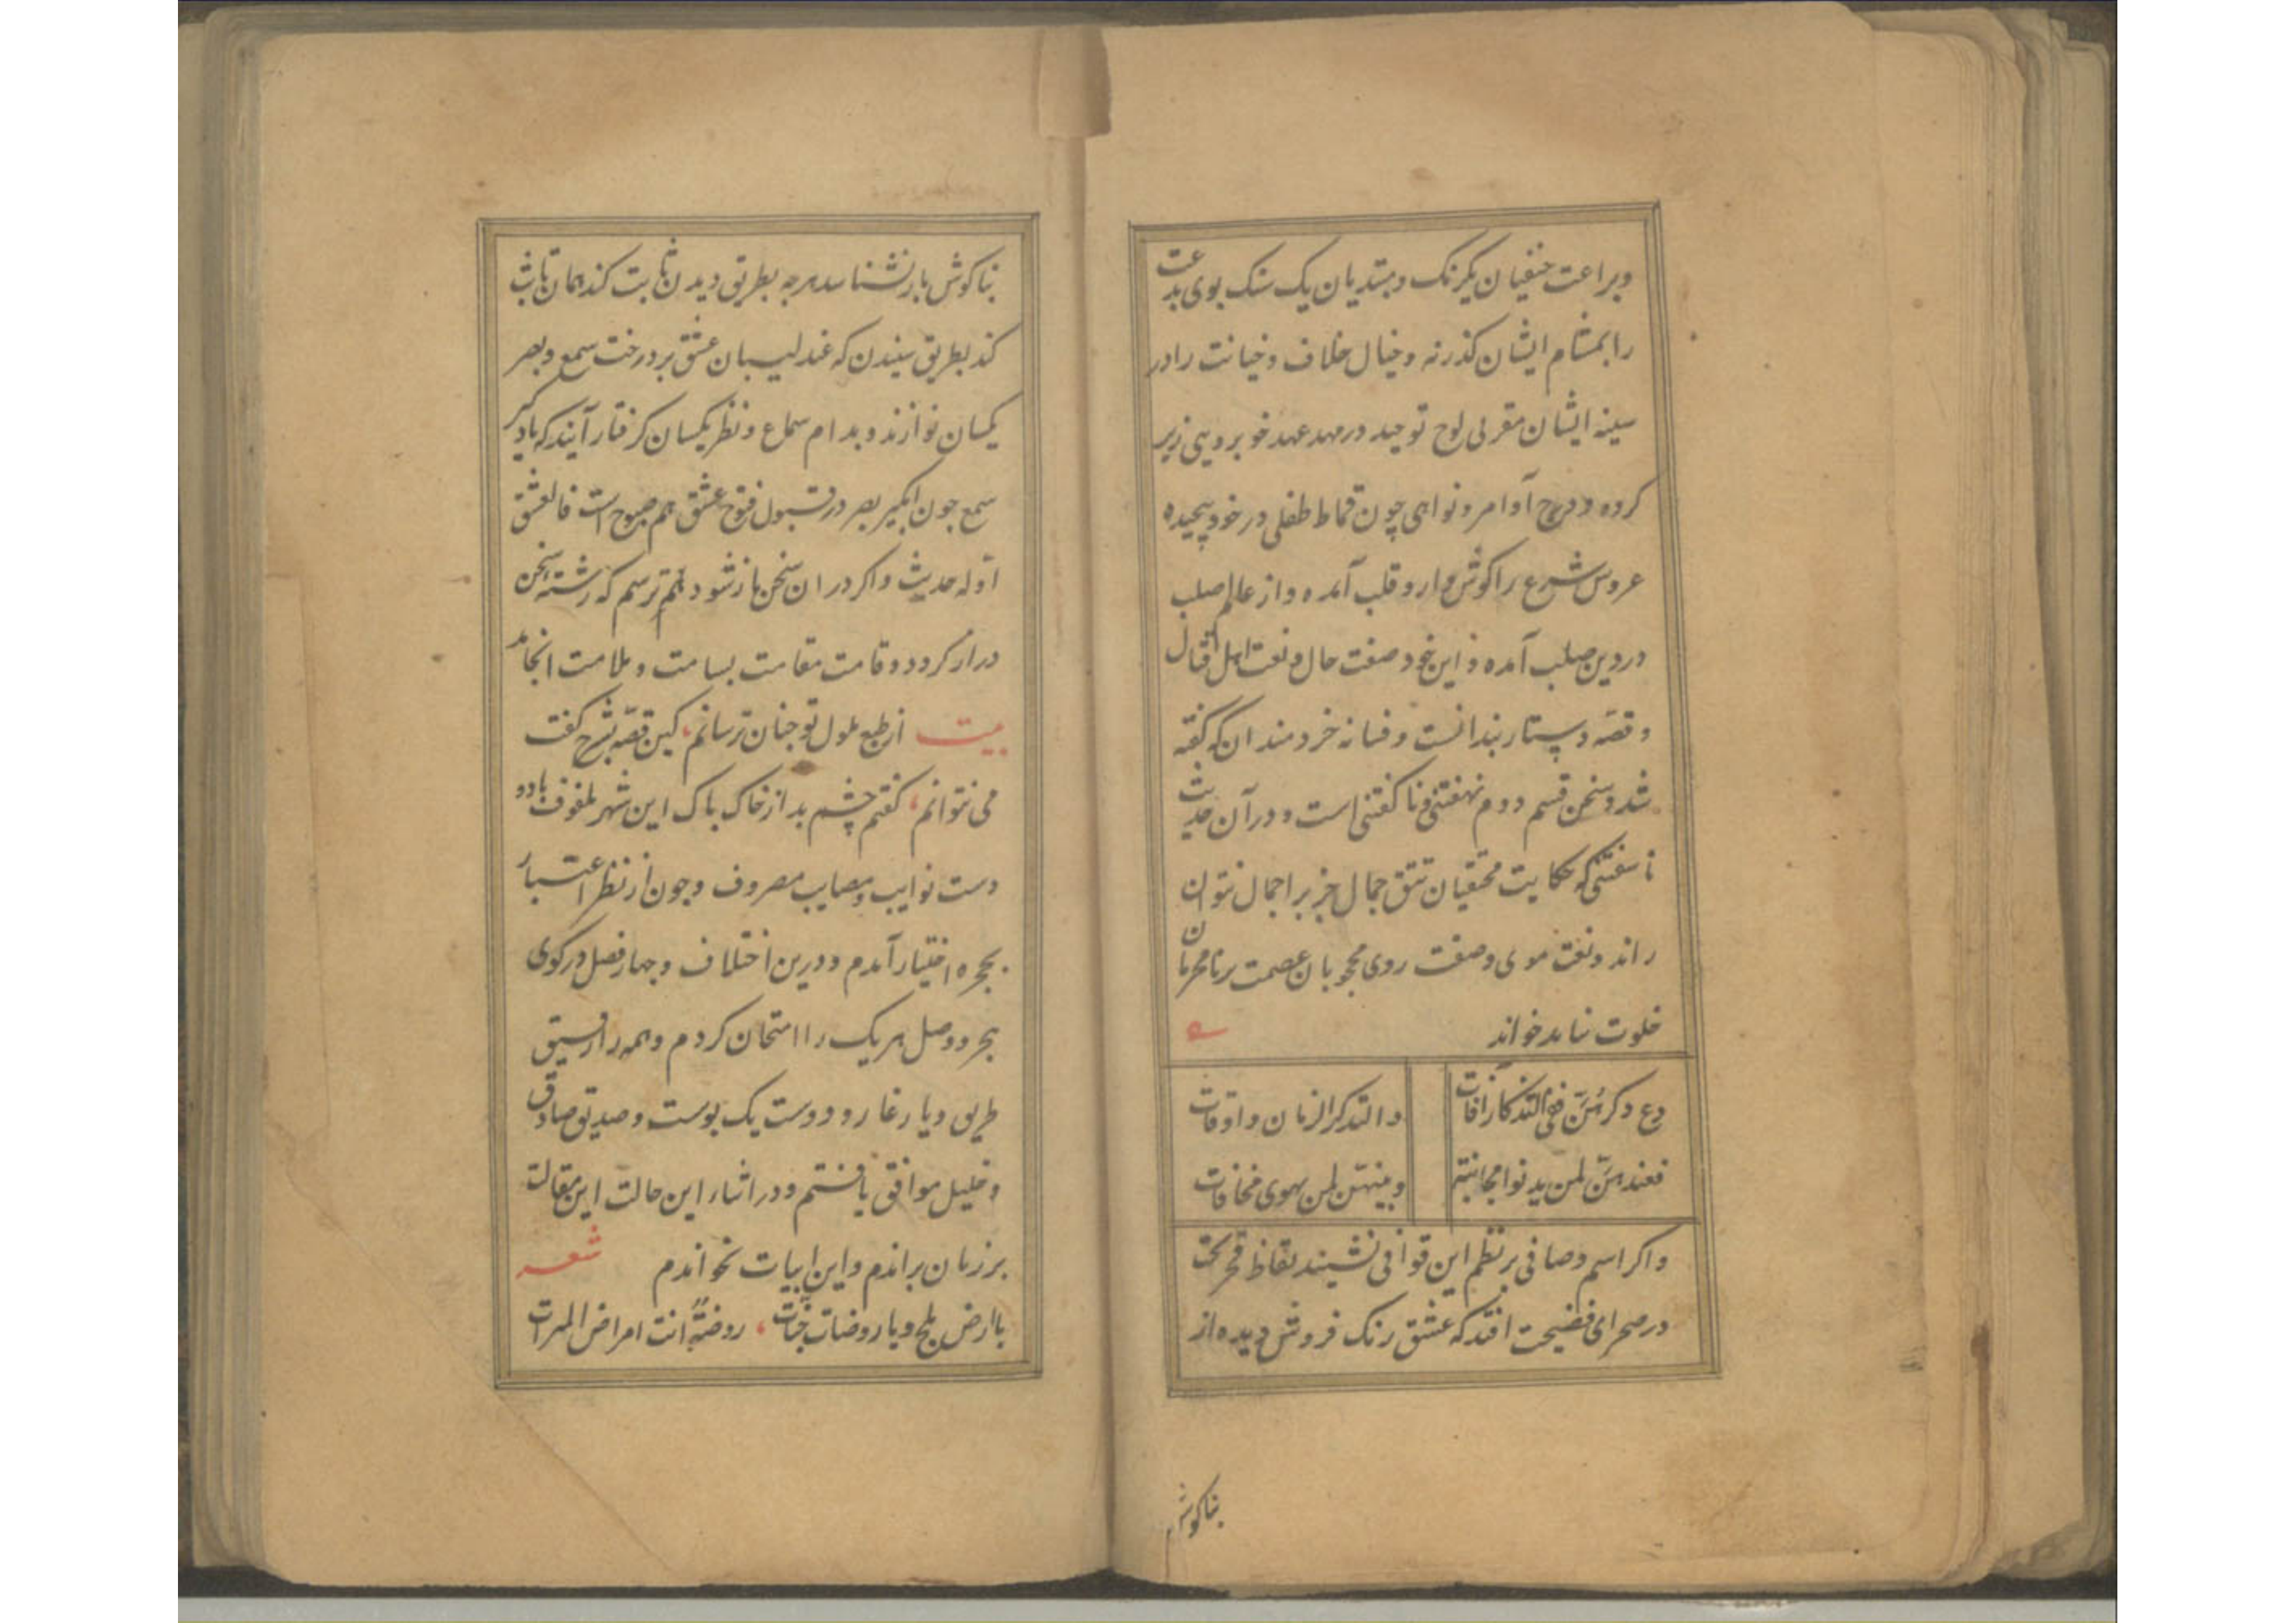 وبراعت حنفیان یکرنک و مبتدیان یک سنک بوی بدعت
را بمشام ایشان کذر نه و خیال خلاف و خیانت را در
سینه ایشان مقر لی لوح توحید در مهد عهد خوبرویی زیر
کرده و درج آوامر و نواهی چون قماط طفلی در خود پیچیده
عروس شرع را کوشوار و قلب آمده و از عالم صلب
در دین صلب آمده و این خود صفت حال و نعت اهل اقبال
و قصه دستار بندانست و فسانه خردمندان که کفته
شد و سخن قسم دوم نهفتنی و ناکفتنی است و در آن حدیث
ناسفتنی که حکایت محققیان تتق جمال جز بر اجمال نتوان
راند و نعت موی و صفت روی محجوبان عصمت بر نامحرمان
خلوت نباید خواند
دع ذکرهن ففی التذکار افات
و التذکر ازمان و اوقات
فعندهن لمن یدنوا مجانبة
و بینهن لمن یهوی مخافات
و اکر اسم وصافی بر نظم این قوافی نشیند نقاط
در صحرای فضیحت افتد که عشق رنک فروش دیده از
بناکوش
بناکوش باز نشناسد هر چه بطریق دیدن ثابت کند همان ثابت
کند بطریق شنیدن که عندلیبان عشق بر درخت سمع و بصر
یکسان نوازند و بدام سماع و نظر یکسان کرفتار آیند که
سمع جون بصر در قبول فتوح عشق هم صبوح است فالعشق
اوله حدیث و اکر در ان سخن باز شود ترسم که رشته سخن
دراز کردد و قامت مقامت بسامت و ملامت انجامد
بیت از طبع ملول تو جنان ترسانم، کین قصه بشرح کفت
می نتوانم، کفتم چشم بد از خاک پاک این شهر
دست نوایب و مصایب مصروف و جون از نظر اعتبار
بحجره اختیار آمدم و درین اختلاف و جهار فصل در کوی
هجر و وصل هر یک را امتحان کردم و همه را رفیق
طریق و یار غار و دوست یک پوست و صدیق صادق
و خلیل موافق یافتم و در اثناء این حالت این مقالت
بر زبان براندم و این ابیات بخواندم شعر
یا ارض بلخ و یا روضات جنات، روضة انت امراض المسرات